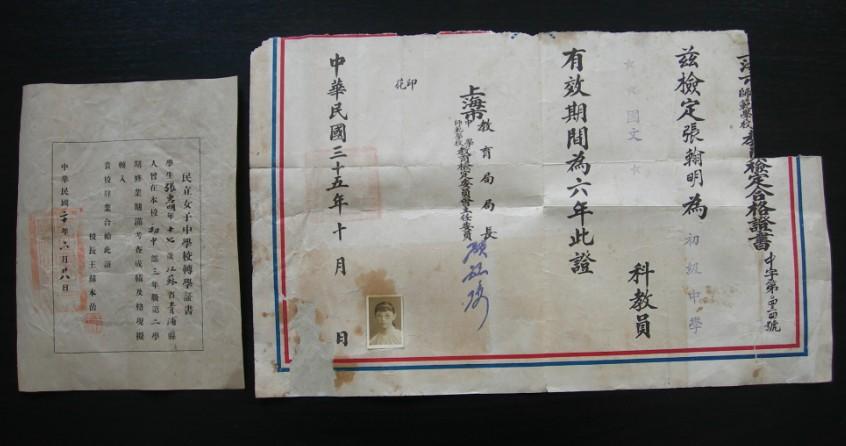 民立女子中學校轉學証書
學生張惠明年十七歲江蘇省青浦縣
人曾在本校初中部三年級第二學
期終業期滿考查成績及格現擬
轉入
貴校肄業合給此證
校長王蘇本嵒
中華民國二十年六月廿八日
師範學校
檢定合格證書
中字第
號
茲檢定張翰明為初級中學
國文
科教員
有效期間為六年此證
上海市教育局局長
中學
師範學校教員檢定委員會主任委員
印花
中華民國三十五年十月 日